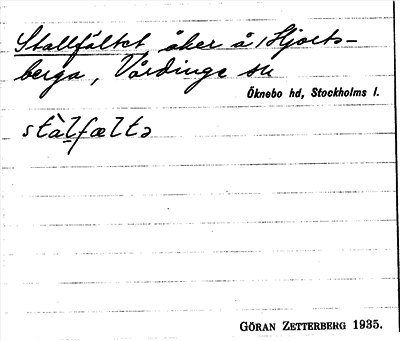 Stallfältet, åker å Hjorts-
berga, Vårdinge sn
Öknebo hd, Stockholms l.
stàlfæltə
GÖRAN ZETTERBERG 1935.